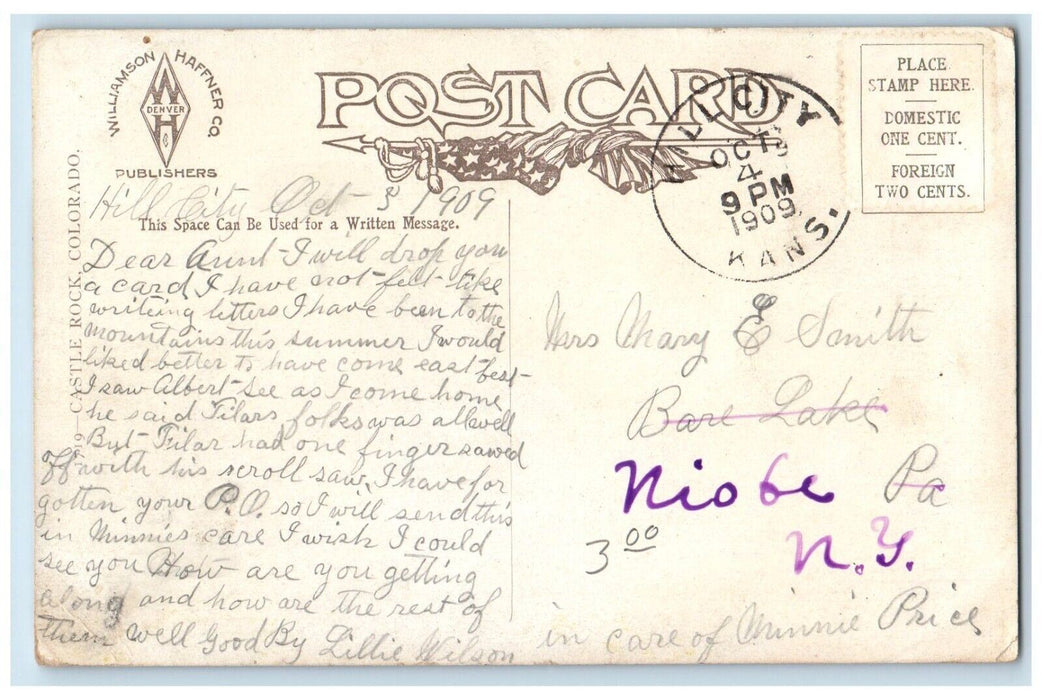 WILLIAMSON HAFFNER CO.
DENVER
PUBLISHERS
POST CARD
PLACE
STAMP HERE.
DOMESTIC
ONE CENT.
FOREIGN
TWO CENTS.
HILL CITY
OCT
4
9 PM
1909
KANS.
Hill City Oct 3 1909
This Space Can Be Used for a Written Message.
19—CASTLE ROCK, COLORADO.
Dear Aunt I will drop you
a card I have not felt like
writeing letters I have been to the
mountains this summer I would
liked better to have come east best
I saw Albert See as I come home
he said Filars folks was all well
But Filar had one finger sawed
off with his scroll saw, I have for
gotten your P.O. so I will send this
in Minnies care I wish I could
see you How are you getting
along and how are the rest of
them well Good By Lillie Wilson
Mrs Mary E Smith
Bare Lake
Niobe Pa
N.Y.
3 00
in care of Minnie Price